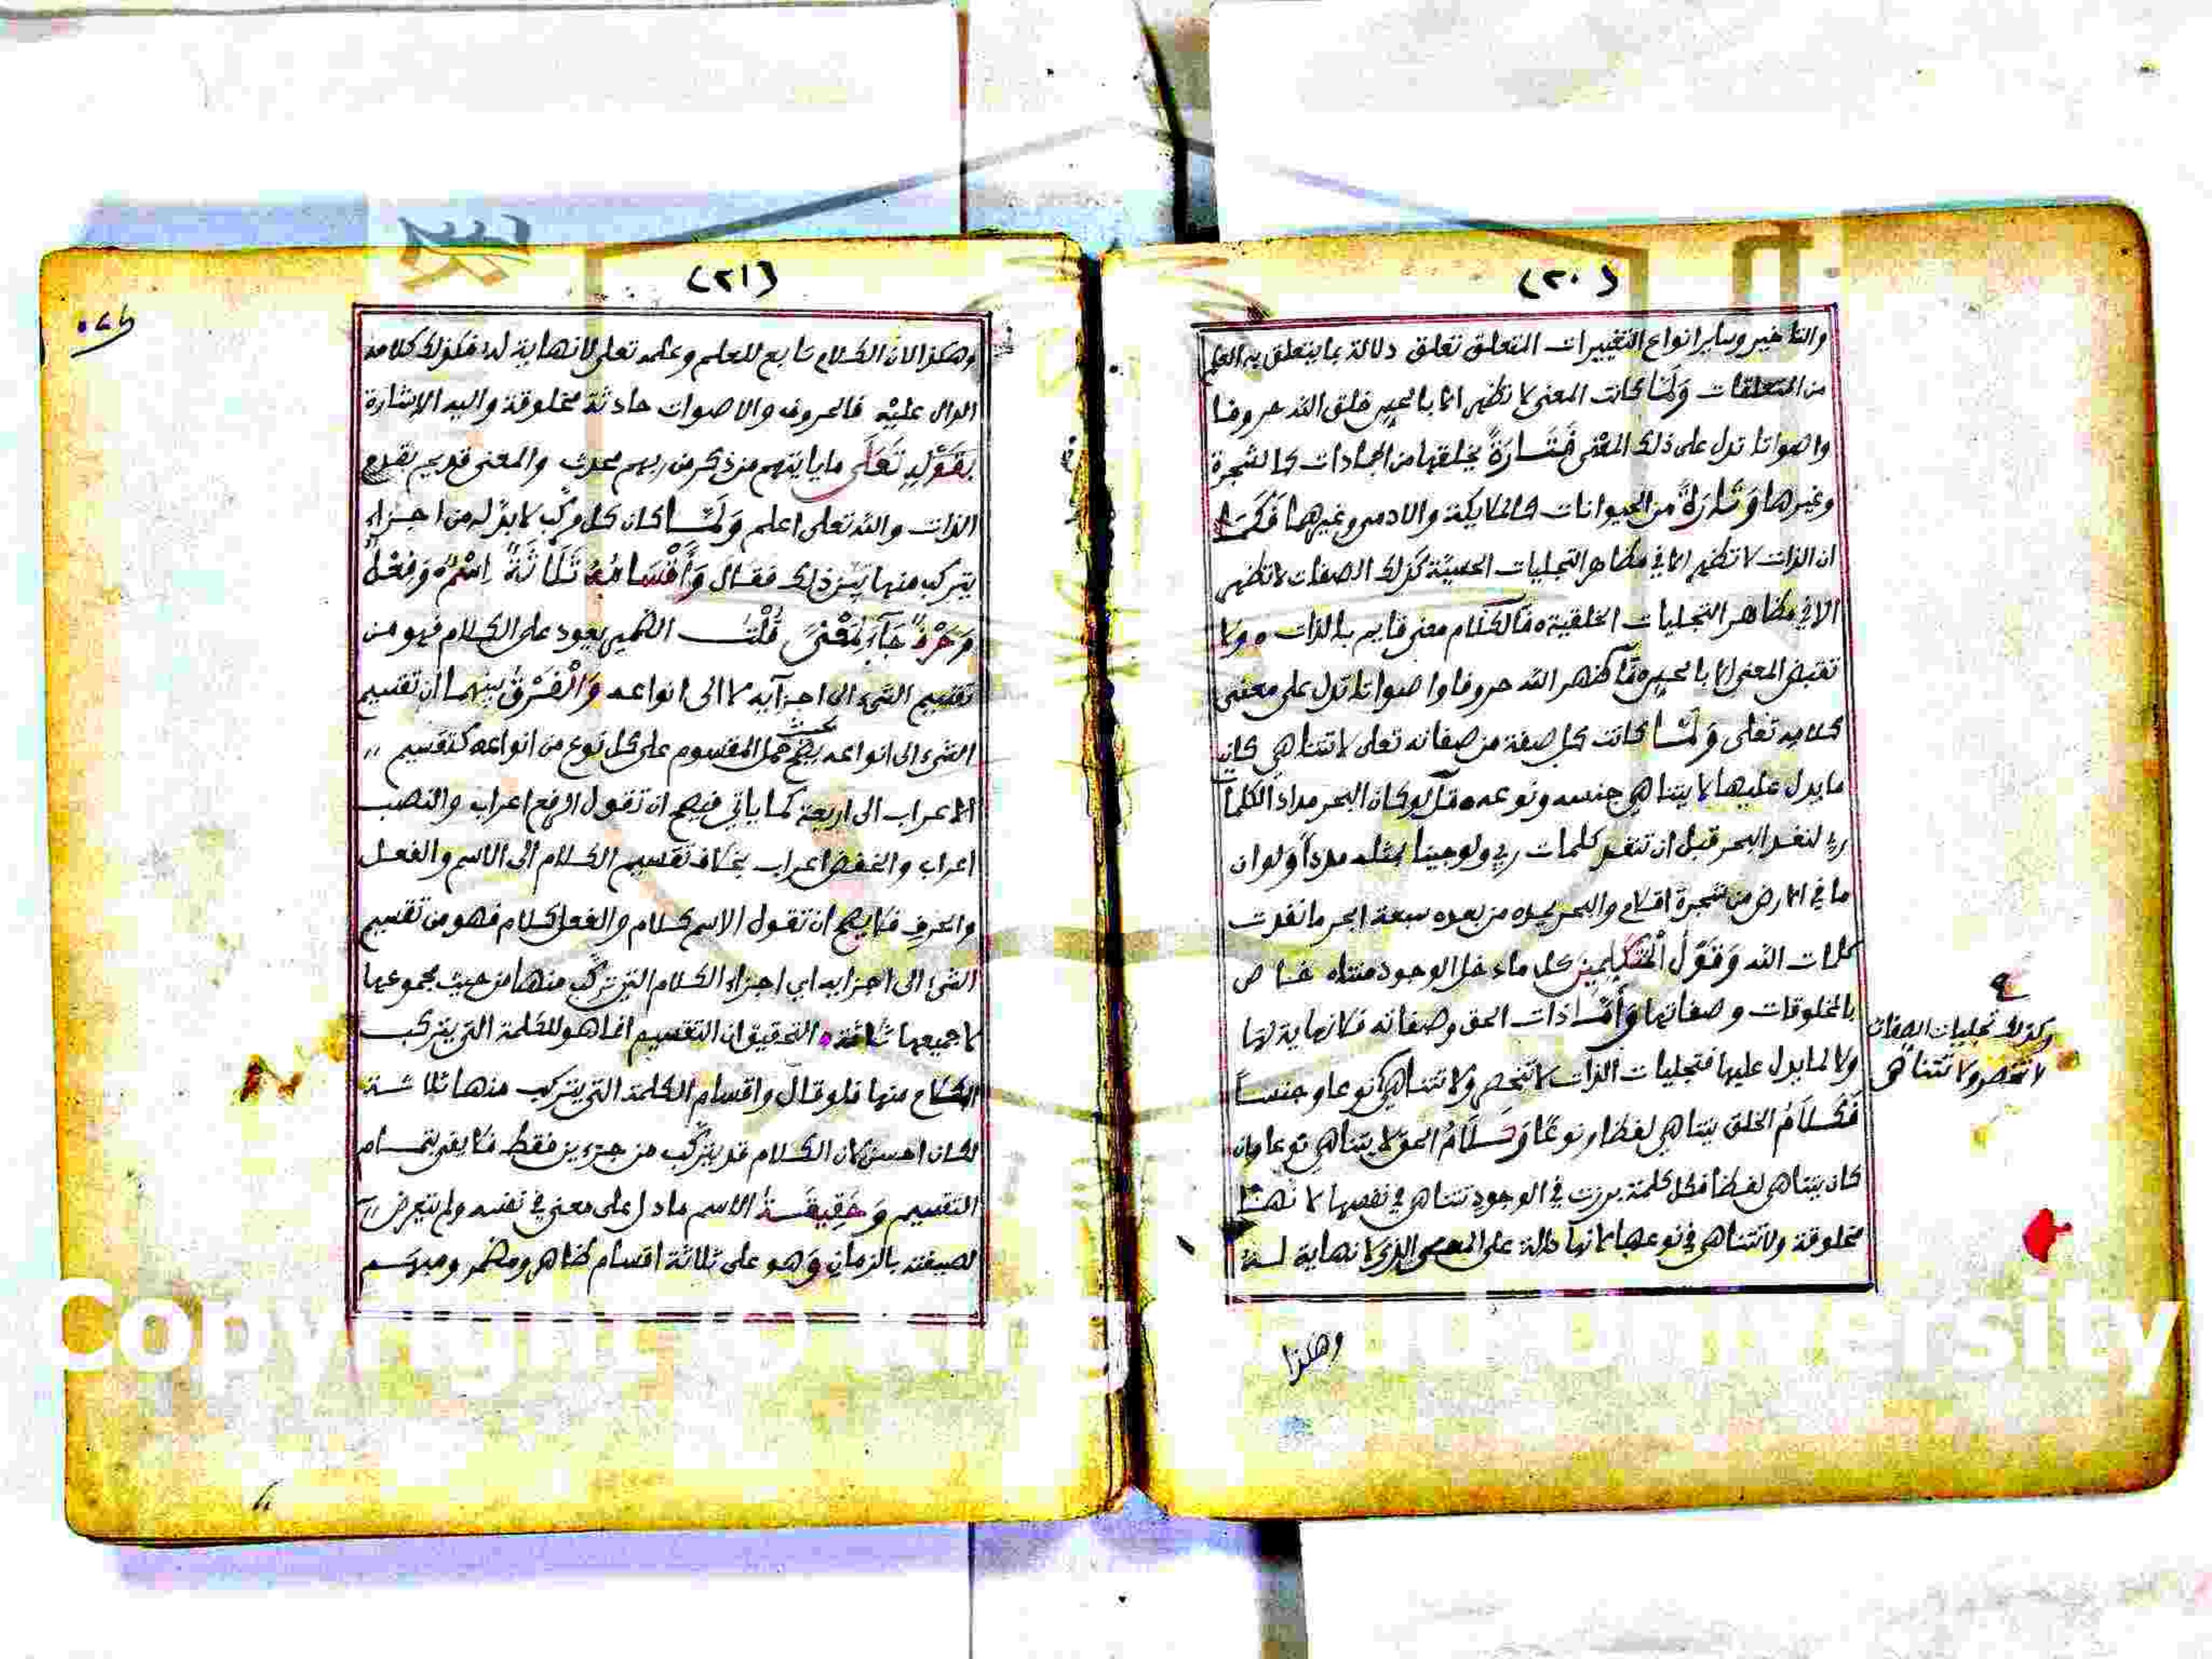 (٢٠)
والتاخير وساير انواع التغييرات المتعلق تعلق دلالة بما يتعلق به العلم
من المتعلقات ولما كانت المعنى لا تظهر الا بالحس خلق الله حروفا
واصواتا تدل على ذلك المعنى فتارة يخلقها من الجمادات كالشجرة
وغيرها وتارة من الحيوانات كالملايكة والادمي وغيرهما فكما
ان الذات لا تظهر الا في مظاهر التجليات الحسية كذلك الصفات لا تظهر
الا في مظاهر التجليات الخلقية فالكلام معنى قايم بالذات ولا
المعنى الا فاظهر الله حروفا واصواتا تدل على معنى
كلامه تعلى ولما كانت كل صفة من صفاته تعلى لا تتناهي كان
ما يدل عليها لا يتناهي جنسه ونوعه قل لو كان البحر مدادا لكلمات
ربي لنفد البحر قبل ان تنفد كلمات ربي ولو جينا بمثله مددا ولو ان
ما في الارض من شجرة اقلام والبحر يمده من بعده سبعة ابحر ما نفدت
كلمات الله وقول المتكلمين كل ما دخل الوجود متناه خاص
بالمخلوقات وصفاتها واما ذات الحق وصفاته فلا نهاية لها
ولا لما يدل عليها فتجليات الذات لا تنحصر ولا تتناهي نوعا وجنسا
فكلام الخلق يتناهي لفظا ونوعا وكلام الحق لا يتناهي نوعا وان
كان يتناهي لفظا فكل كلمة برزت في الوجود تتناهي في نفسها لانها
مخلوقة ولا تتناهي في نوعها لانها دالة على المعنى الذي لا نهاية له
وكذلك تجليات الصفات
لا تنحصر ولا تتناهي
وهكذا
(٢١)
وهكذا لان الكلام تابع للعلم وعلمه تعلى لا نهاية له فكذلك كلامه
الدال عليه فالحروف والاصوات حادثة مخلوقة واليه الاشارة
بقوله تعلى ما ياتيهم من ذكر من ربهم محدث والمعنى قديم بقدم
الذات والله تعلى اعلم ولما كان كل مركب لا بد له من اجزاء
يتركب منها بين ذلك فقال وأقسامه ثلاثة اسم وفعل
وحرف جاء لمعنى قلت الضمير يعود على الكلام فهو من
تقسيم الشيء الى اجزايه لا الى انواعه والفرق بينهما ان تقسيم
الشيء الى انواعه يصح حمل المقسوم على كل نوع من انواعه كتقسيم
الاعراب الى اربعة كما ياتي فيصح ان تقول الرفع اعراب والنصب
اعراب والخفض اعراب بخلاف تقسيم الكلام الى الاسم والفعل
والحرف فلا يصح ان تقول الاسم كلام والفعل كلام فهو من تقسيم
الشيء الى اجزايه اي اجزاء الكلام التي تركب منها من حيث مجموعها
لا جميعها ثلاثة التحقيق ان التقسيم انما هو للكلمة التي يتركب
الكلام منها فلو قال واقسام الكلمة التي يتركب منها ثلاثة
لكان احسن لان الكلام قد يتركب من جزءين فقط فلا يفي بتمام
التقسيم وحقيقة الاسم ما دل على معنى في نفسه ولم يتعرض
لصيغته بالزمان وهو على ثلاثة اقسام ظاهر ومضمر ومبهم
Copyright © King Saud University